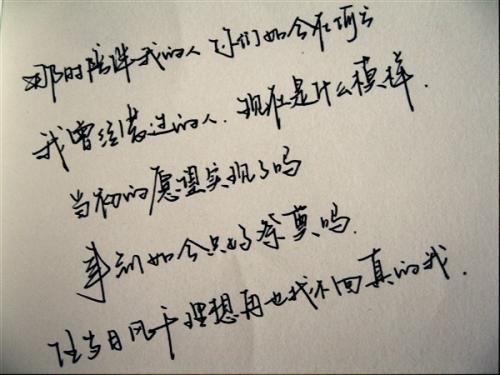 那时陪伴我的人 你们如今在何方
我曾经爱过的人.现在是什么模样.
当初的愿望实现了吗
事到如今只好祭奠吗.
任岁月风干理想再也找不回真的我.